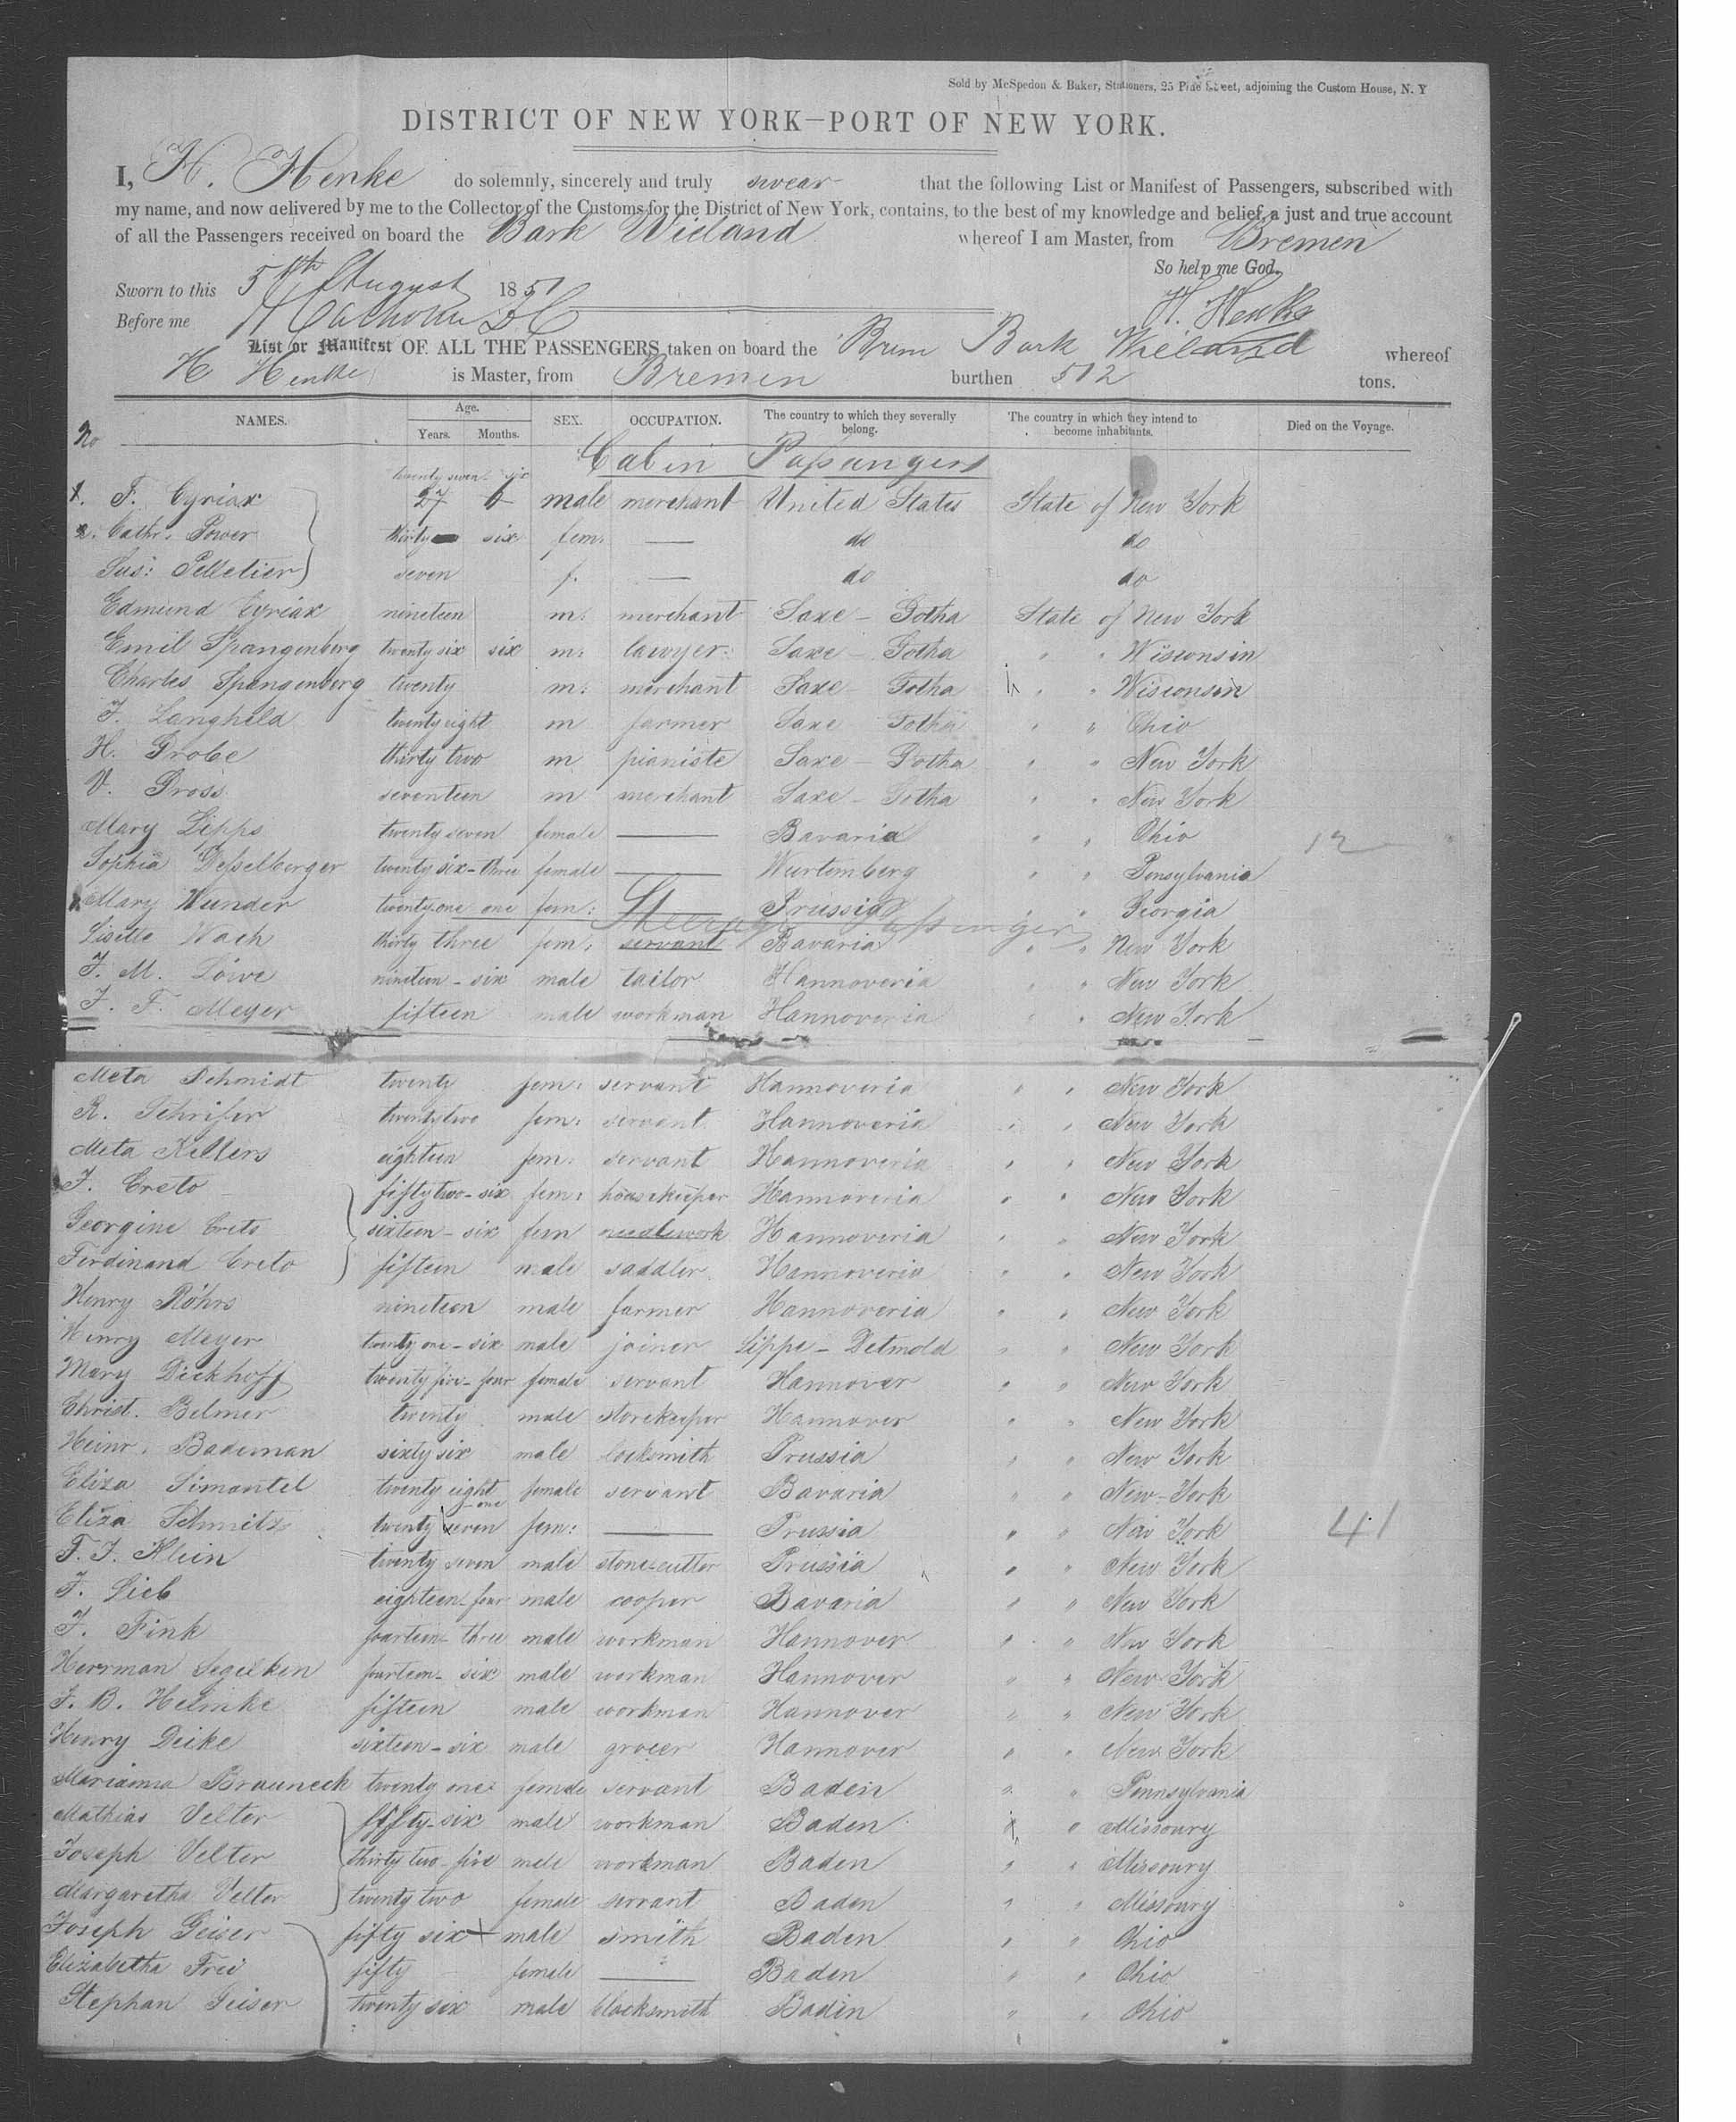 Sold by McSpedon & Baker, Stationers, 25 Pine Street, adjoining the Custom House, N. Y
DISTRICT OF NEW YORK—PORT OF NEW YORK.
I, H. Henke do solemnly, sincerely and truly swear that the following List or Manifest of Passengers, subscribed with
my name, and now delivered by me to the Collector of the Customs for the District of New York, contains, to the best of my knowledge and belief, a just and true account
of all the Passengers received on board the Bark Wieland whereof I am Master, from Bremen
So help me God.
Sworn to this 5th August 1851
H. Henke
Before me
List or Manifest OF ALL THE PASSENGERS taken on board the Brem Bark Wieland whereof
H Henke is Master, from Bremen burthen 512 tons.
No NAMES. Age. Years. Months. SEX. OCCUPATION. The country to which they severally belong. The country in which they intend to become inhabitants. Died on the Voyage.
Cabin Passengers
twenty seven six
1. F. Cyriax 27 6 male merchant United States State of New York
2. Cathr. Power thirty six fem: — do do
Sus: Pelletier seven f. — do do
Edmund Cyriax nineteen m: merchant Saxe - Gotha State of New York
Emil Spangenberg twenty six six m: lawyer: Saxe - Gotha " " Wisconsin
Charles Spangenberg twenty m: merchant Saxe Gotha " " Wisconsin
F. Langheld twenty eight m farmer Saxe Gotha " " Ohio
H. Grobe thirty two m pianiste Saxe - Gotha " " New York
V. Gross seventeen m merchant Saxe - Gotha " " New York
Mary Lipps twenty seven female — Bavaria " " Ohio 12
Sophia Desselberger twenty six - three female — Wurtemberg " " Pensylvania
Mary Wunder twenty one one fem: — Prussia " " Georgia
Steerage Passenger
Lisette Wach thirty three fem: servant Bavaria " " New York
J. M. Löwe nineteen - six male tailor Hannoveria " " New York
J. F. Meyer fifteen male workman Hannoveria " " New York
Meta Schmidt twenty fem: servant Hannoveria " " New York
R. twenty two fem: servant Hannoveria " " New York
Meta Kellers eighteen fem: servant Hannoveria " " New York
F. Creto fifty two - six fem: housekeeper Hannoveria " " New York
Georgine Creto sixteen - six fem needlework Hannoveria " " New York
Ferdinand Creto fifteen male saddler Hannoveria " " New York
Henry Röhrs nineteen male farmer Hannoveria " " New York
Henry Meyer twenty one - six male joiner Lippe - Detmold " " New York
Mary Dickhoff twenty five - four female servant Hannover " " New York
Christ. Belmer twenty male storekeeper Hannover " " New York
Heinr. Bademan sixty six male locksmith Prussia " " New York
Eliza Simantel twenty eight female servant Bavaria " " New-York
Eliza Schmitz twenty seven one fem: — Prussia " " New York 41
F. J. Klein twenty seven male stone-cutter Prussia " " New York
F. Lieb eighteen - four male cooper Bavaria " " New York
F. Fink fourteen - three male workman Hannover " " New York
Herrman Segelken fourteen - six male workman Hannover " " New York
J. B. Helmke fifteen male workman Hannover " " New York
Henry Deike sixteen - six male grocer Hannover " " New York
Marianna Brauneck twenty one female servant Baden " " Pennsylvania
Mathias Velter fifty-six male workman Baden " " Missoury
Joseph Velter thirty two - five male workman Baden " " Missoury
Margaretha Velter twenty two female servant Baden " " Missoury
Joseph Geiser fifty six male smith Baden " " Ohio
Elizabetha Frei fifty female — Baden " " Ohio
Stephan Geiser twenty six male blacksmith Baden " " Ohio